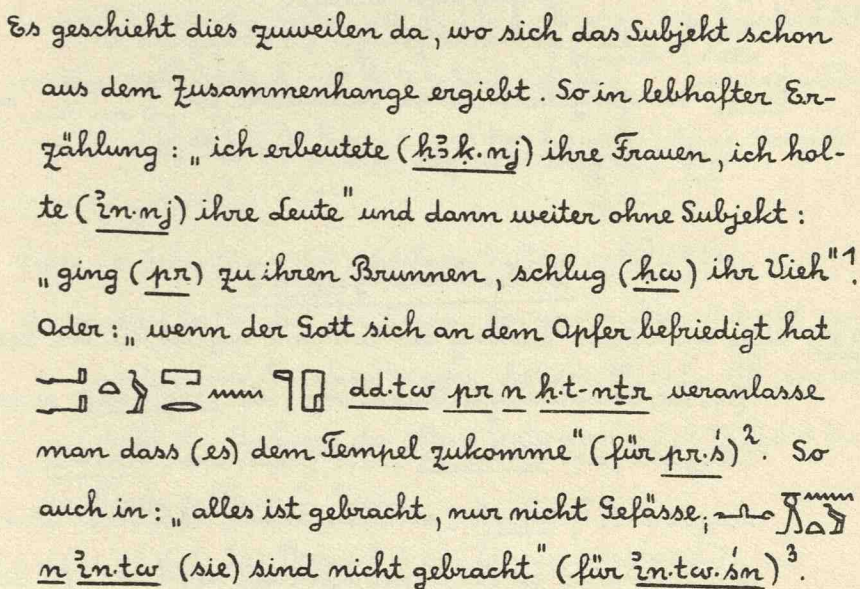 Es geschieht dies zuweilen da, wo sich das Subjekt schon
aus dem Zusammenhange ergiebt. So in lebhafter Er-
zählung: „ich erbeutete (ḥꜣḳ.nj) ihre Frauen, ich hol-
te (ꞽn.nj) ihre Leute" und dann weiter ohne Subjekt:
„ging (pr) zu ihren Brunnen, schlug (ḥw) ihr Vieh"¹.
Oder: „wenn der Gott sich an dem Opfer befriedigt hat
dd.tw pr n ḥ.t-nṯr veranlasse
man dass (es) dem Tempel zukomme" (für pr.ś)². So
auch in: „alles ist gebracht, nur nicht Gefässe;
n ꞽn.tw (sie) sind nicht gebracht" (für ꞽn.tw.śn)³.